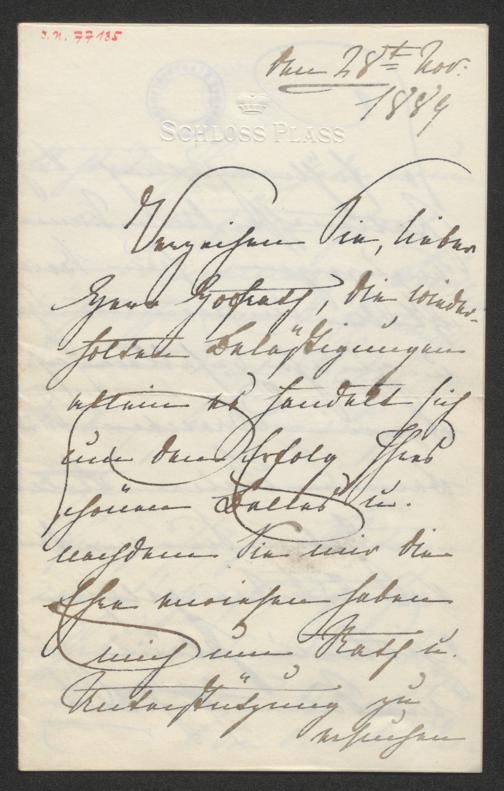 J.N. 77135
den 28t Nov.
1889
SCHLOSS PLASS
Verzeihen Sie, lieber
Herr Hofrath, die wieder-
holten Belästigungen
allein es handelt sich
um den Erfolg Ihres
schönen Balles u.
nachdem Sie mir die
Ehre erwiesen haben
mich um Rath u.
Unterstützung zu
ersuchen